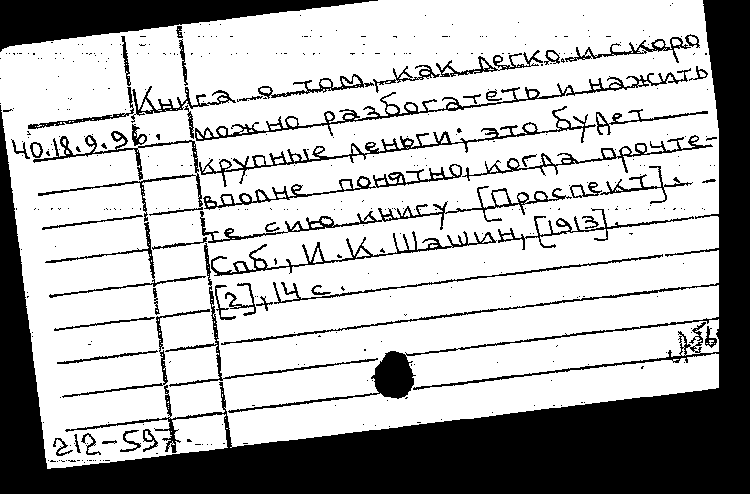 Книга о том, как легко и скоро
40.18.9.96. можно разбогатеть и нажить
крупные деньги; это будет
вполне понятно, когда прочте-
те сию книгу. [Проспект]. -
Спб., И.К. Шашин, [1913].
[2], 14 с.
212-597.